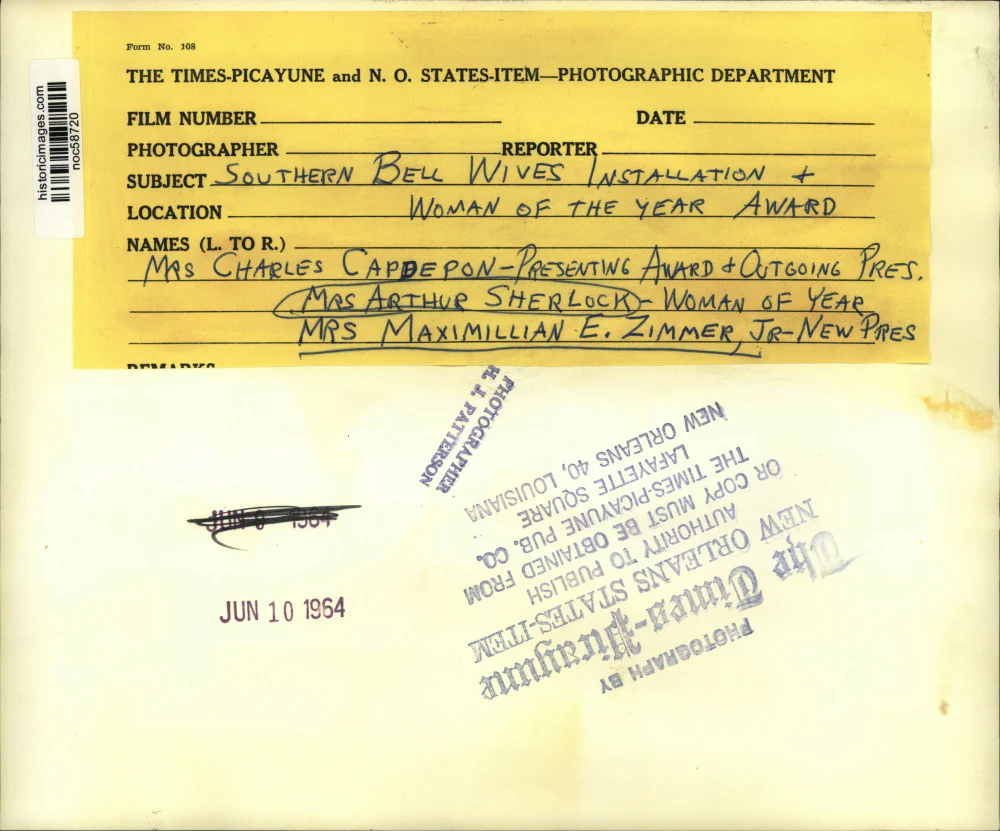 Form No. 108
THE TIMES-PICAYUNE and N. O. STATES-ITEM—PHOTOGRAPHIC DEPARTMENT
FILM NUMBER DATE
PHOTOGRAPHER REPORTER
SUBJECT SOUTHERN BELL WIVES INSTALLATION +
LOCATION WOMAN OF THE YEAR AWARD
NAMES (L. TO R.)
MRS CHARLES CAPDEPON - PRESENTING AWARD + OUTGOING PRES.
MRS ARTHUR SHERLOCK - WOMAN OF YEAR
MRS MAXIMILLIAN E. ZIMMER, JR - NEW PRES
REMARKS
historicimages.com
noc58720
PHOTOGRAPHER
H. J. PATTERSON
JUN 1964
JUN 10 1964
PHOTOGRAPH BY
The Times-Picayune
NEW ORLEANS STATES-ITEM
AUTHORITY TO PUBLISH
OR COPY MUST BE OBTAINED FROM
THE TIMES-PICAYUNE PUB. CO.
LAFAYETTE SQUARE
NEW ORLEANS 40, LOUISIANA